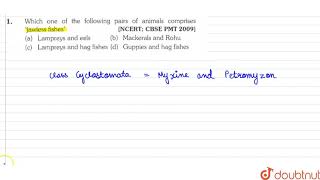 1. Which one of the following pairs of animals comprises
'jawless fishes' [NCERT; CBSE PMT 2009]
(a) Lampreys and eels (b) Mackerals and Rohu
(c) Lampreys and hag fishes (d) Guppies and hag fishes
class Cyclostomata = Myxine and Petromyzon
doubtnut